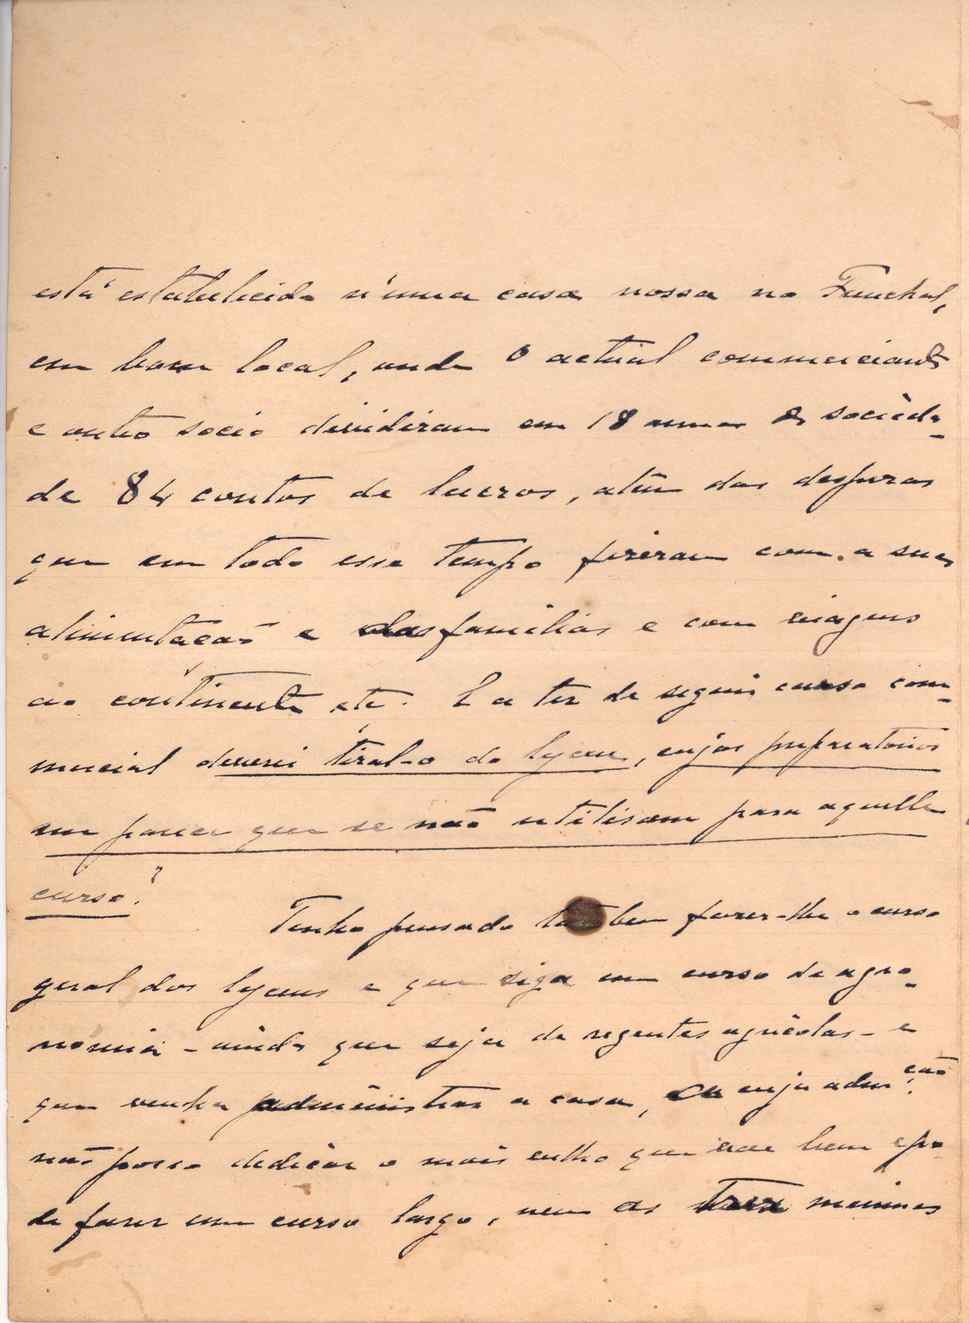 está estabelecido n'uma casa nossa no Funchal,
em bom local, onde o actual commerciante
e outro socio dividiram em 18 annos de socieda-
de 84 contos de lucros, além das despezas
que em todo esse tempo fizeram com a sua
alimentação e das familias e com viagens
ao continente, etc. E a ter de seguir curso com-
mercial deverei tiral-o do lyceu, cujos preparatorios
me parece que se não utilisam para aquelle
curso?
Tenho pensado tambem fazer-lhe o curso
geral dos lyceus e que siga um curso de agro-
nomia - ainda que seja de regentes agricolas - e
que venha administrar a casa, cuja adm.ção
não posso dedicar o mais velho que vae bem e po-
de fazer um curso largo, nem as tres meninas